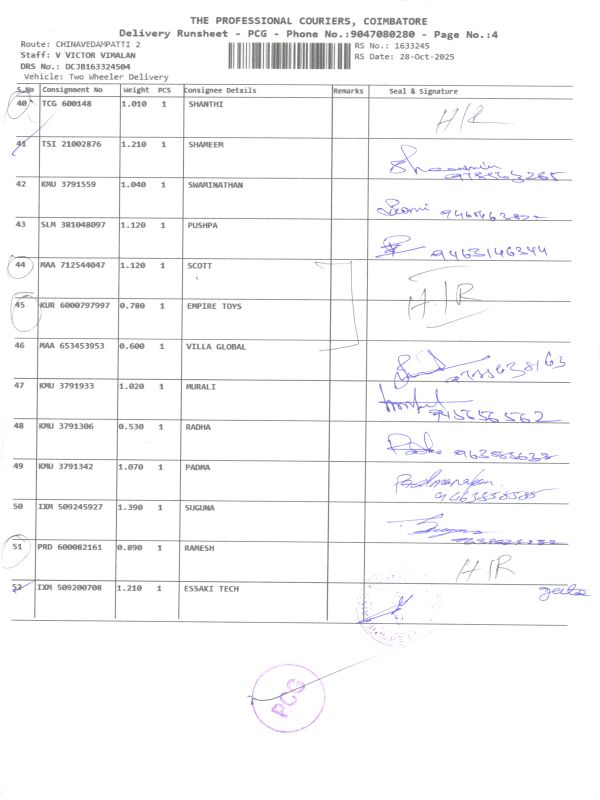 THE PROFESSIONAL COURIERS, COIMBATORE
Delivery Runsheet - PCG - Phone No.:9047080280 - Page No.:4
Route: CHINAVEDAMPATTI 2 RS No.: 1633245
Staff: V VICTOR VIMALAN RS Date: 28-Oct-2025
DRS No.: DCJB163324504
Vehicle: Two Wheeler Delivery
S.No Consignment No Weight PCS Consignee Details Remarks Seal & Signature
40 TCG 600148 1.010 1 SHANTHI H/R
41 TSI 21002876 1.210 1 SHAMEEM
42 KMU 3791559 1.040 1 SWAMINATHAN
43 SLM 381048097 1.120 1 PUSHPA 9463146344
44 MAA 712544047 1.120 1 SCOTT
45 KUR 6000797997 0.780 1 EMPIRE TOYS H/R
46 MAA 653453953 0.600 1 VILLA GLOBAL
47 KMU 3791933 1.020 1 MURALI 9456556562
48 KMU 3791306 0.530 1 RADHA
49 KMU 3791342 1.070 1 PADMA
50 IXM 509245927 1.390 1 SUGUNA
51 PRD 600082161 0.890 1 RAMESH H/R
52 IXM 509200708 1.210 1 ESSAKI TECH
PCG